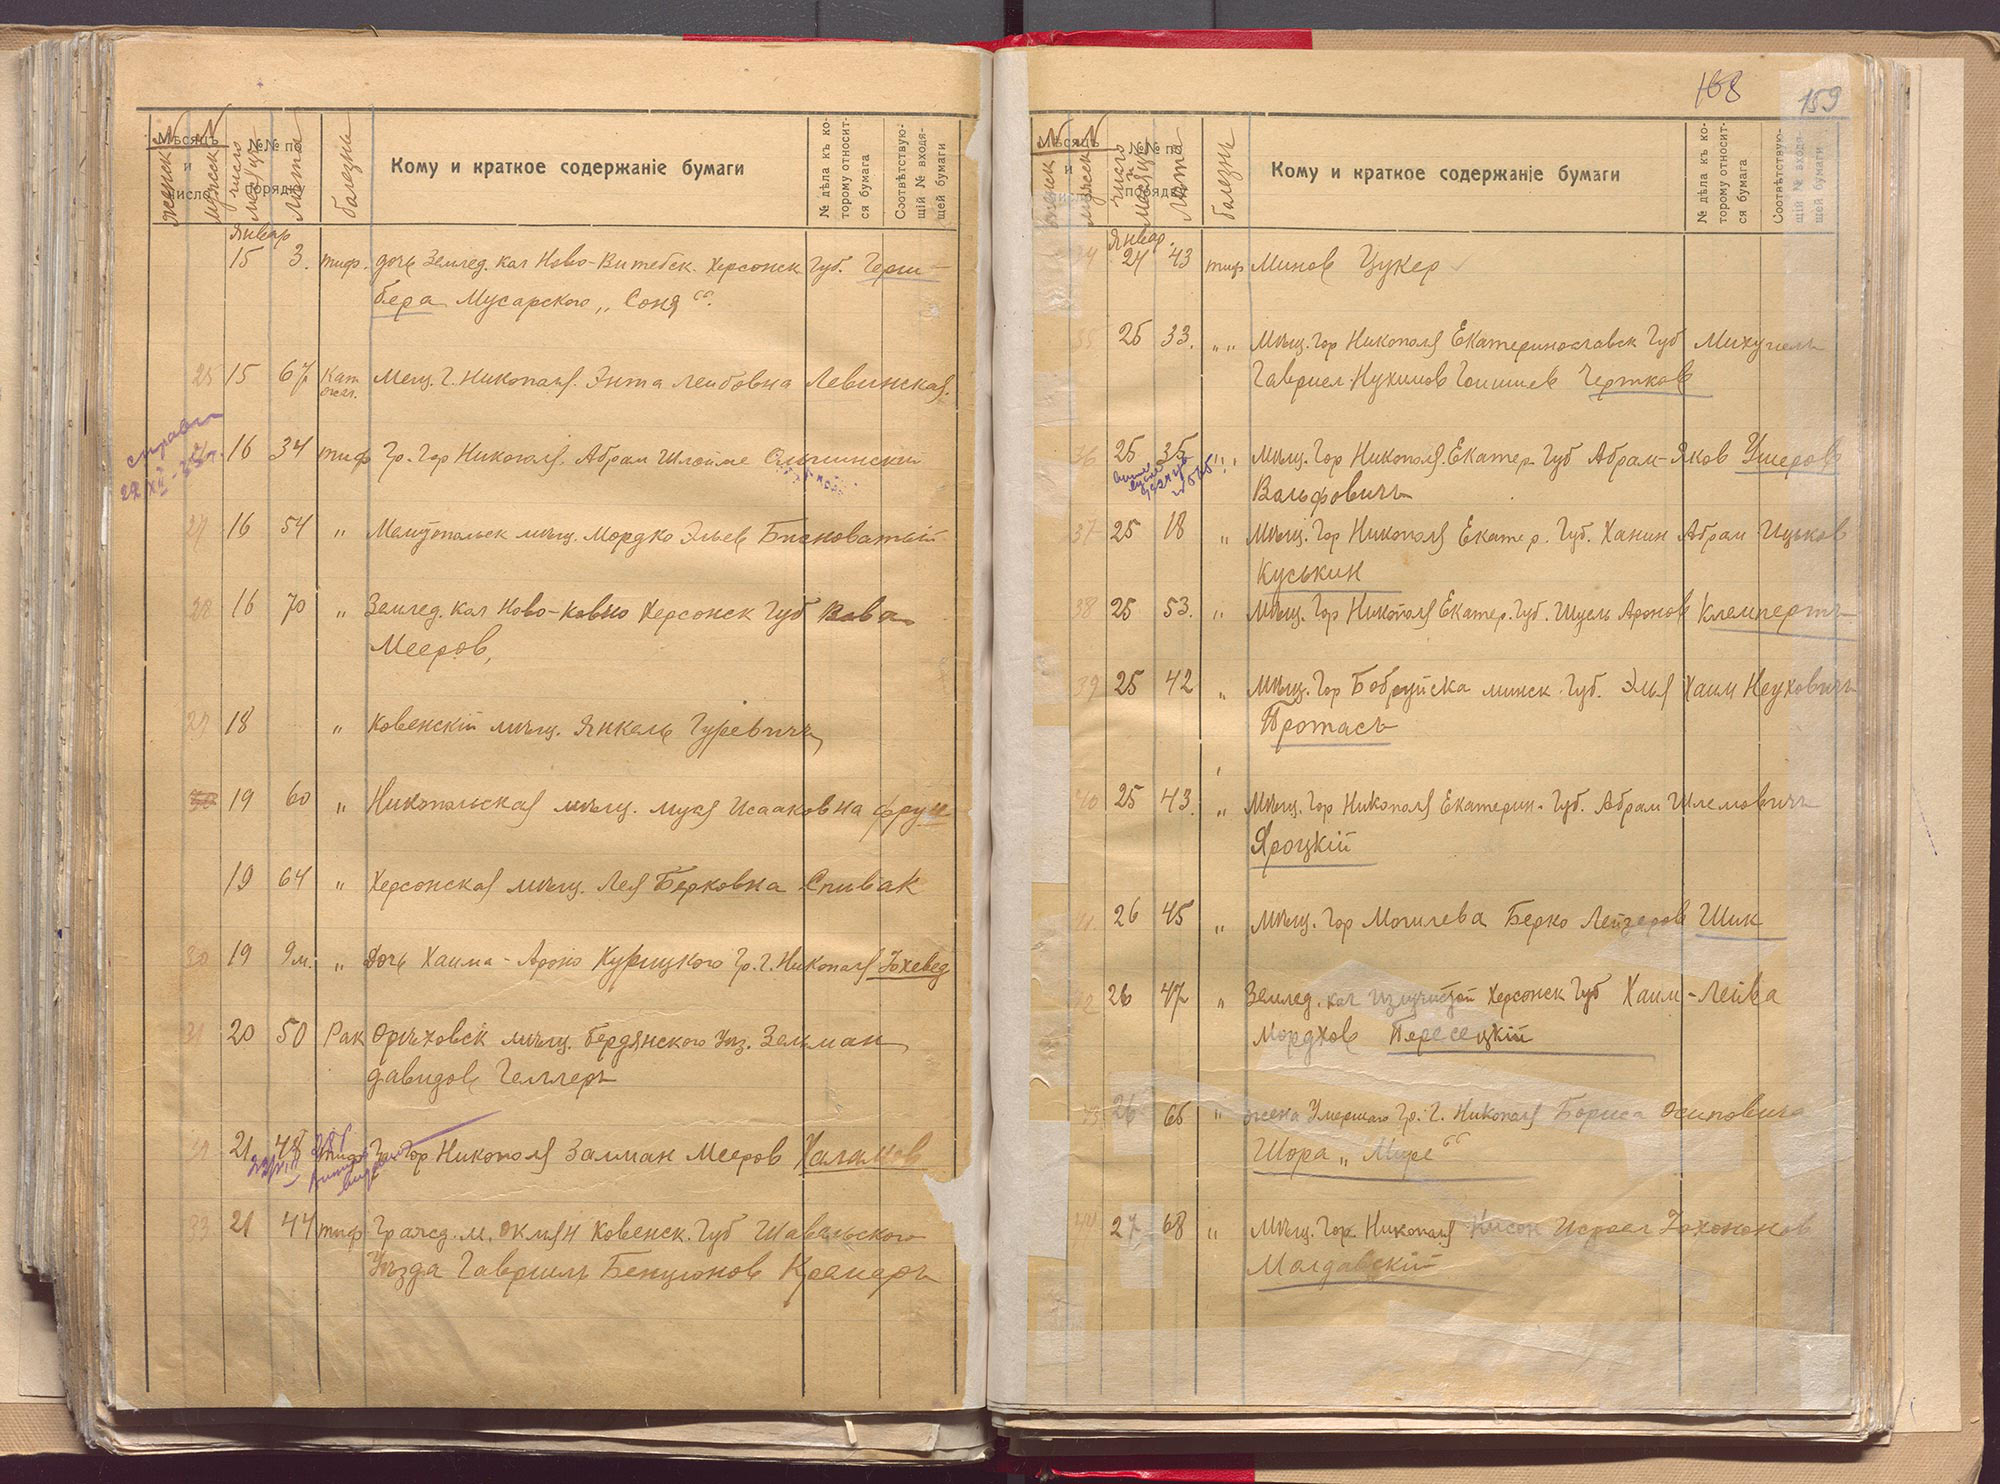 Мѣсяцъ и число
№№ по порядку
Кому и краткое содержаніе бумаги
№ дѣла къ ко-
торому относит-
ся бумага
Соотвѣтствую-
щій № входя-
щей бумаги
женск мужск число мѣсяцъ Лѣта болезнь
Январ
15 3. тиф. дочь Землед. кол Ново-Витебск. Херсонск Губ. Герш-
бера Мусарского „Соня“.
25 15 67 Мещ. Г. Никополя. Энта Лейбовна Левинская.
16 34 тиф Гр. Гор Никополя. Абрам Шлойме
27 16 54 „ мѣщ. Мордко Эльев Билноватый
28 16 70 „ Землед. кол Ново-Ковно Херсонск Губ
Мееров,
29 18 „ Ковенскій мѣщ. Янкель Гуревичъ
19 60 „ Никопольская мѣщ. Муся Исааковна Фрум
19 64 „ Херсонская мѣщ. Лея Берковна Спивак
30 19 9 м. „ Дочь Хаима-Ароно Курицкого Гр. Г. Никополя Іохевед
31 20 50 Рак Орѣховск мѣщ. Бердянского Уѣз. Залман
Давидов Геллеръ
21 48 тиф Гр Гор Никополя Залман Мееров Халамов
33 21 44 тиф Гражд. м. Окмян Ковенск. Губ Шавельского
Уѣзда Гавриель Бенционов Кремеръ
168 159
Мѣсяцъ и
№№ по порядку
Кому и краткое содержаніе бумаги
№ дѣла къ ко-
торому относит-
ся бумага
Соотвѣтствую-
щій № входя-
щей бумаги
мужск число мѣсяцъ Лѣта болезнь
Январ.
34 24 43 тиф Минов Цукер
35 25 33. „ „ Мѣщ. Гор Никополя Екатеринославск Губ Михуель
Гавриел Нухимов Чертков
36 25 35 „ „ Мѣщ. Гор Никополя. Екатер. Губ Абрам-Яков Ушеров
Вольфовичъ
37 25 18 „ Мѣщ. Гор Никополя Екатер. Губ. Ханин Абрам Ицьков
Куськин
38 25 53. „ Мѣщ. Гор Никополя Екатер. Губ. Шуель Аронов Клемпертъ
39 25 42 „ Мѣщ. Гор Бобруйска минск. Губ. Элья Хаим Неуховичъ
Протасъ
40 25 43. „ Мѣщ. Гор Никополя Екатерин. Губ. Абрам Шлемовичъ
Яроцкій
41. 26 45 „ Мѣщ. Гор Могилева Берко Лейзеров Шик
42 26 47 „ Землед. кол Херсонск Губ Хаим-Лейва
Мордхов Пересецкій
43 26 66 „ жена Умершаго Гр. Г. Никополя Бориса Осиповича
Шора „Мире“
44 27 68 „ Мѣщ. Гор. Никополя Нисон Исроел Іохононов
Молдавскій